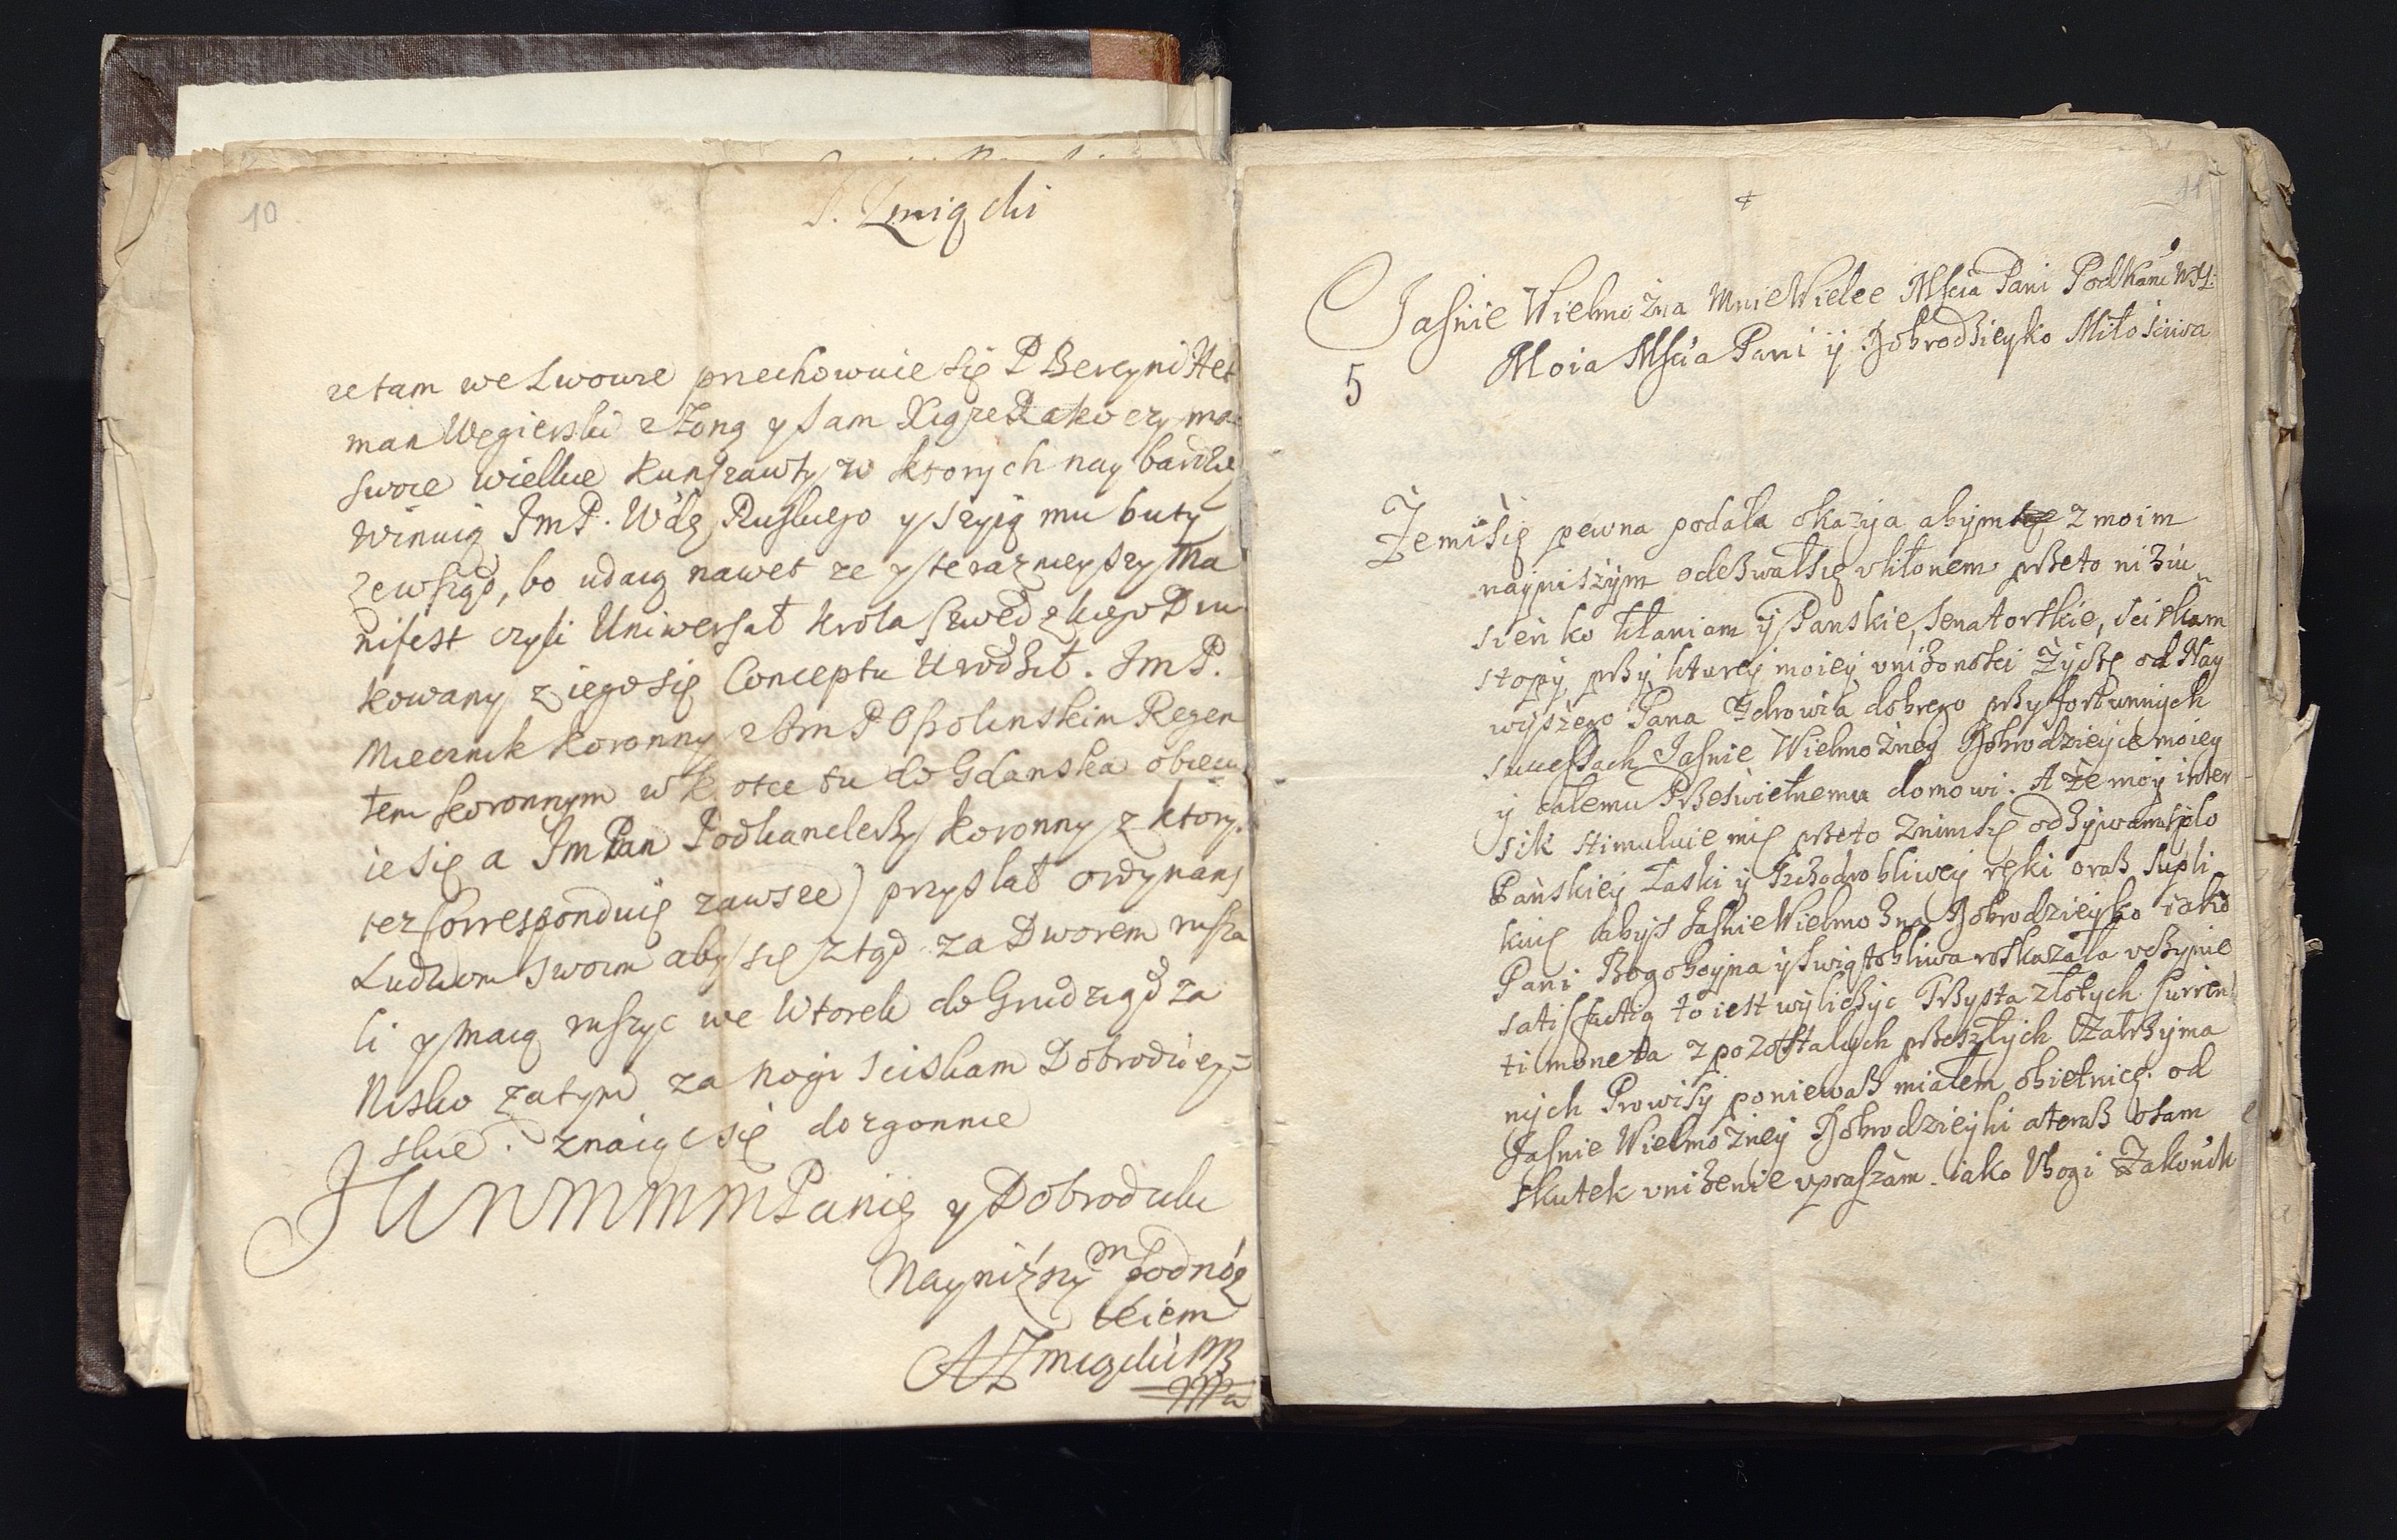 10
P. Zmigdki
ze tam we Lwowie przechowuie się P Bercyni Het
man Węgierski z Żoną y sam Xiąże Rakoczy ma
swoie wielkie kunszawty w ktorych nay bardzie
winuią ImP. Wdę Ruskiego y szyią mu buty
zewsząd, bo udaią nawet ze y teraznieyszy Ma
nifest czyli Uniwersał krola Szwedzkiego Dru
kowany z iego się Conceptu Urodził. ImP.
Miecznik koronny z ImP Opolinskim Regen
tem koronnym w krotce tu do Gdanska obiecu
ie się a ImPan Podkanclerzy koronny z ktorÿ
tez Corresponduię zawsze) przysłał ordynans
Ludziom swoim aby się ztąd za Dworem rusza
li y maią ruszyc we Wtorek do Grudziądza
Nisko zatym za nogi sciskam Dobrodziey=
skie. znaiąc się dozgonnie
J W W M M M Panię y Dobrodziki
Nayniższym podnóż
kiem
AZmigdki mp
11
Jasnie Wielmożna Mnie Wielce Mscia Pani Podkanc WXL:
Moia Mscia Pani ÿ Dobrodzieyko Miłosciwa
5
Że mi się pewna podała okazÿa abÿm z moim
naÿniszÿm odezwał się ukłonem przeto niziu
sieńko kłaniam ÿ Panskie, Senatorskie, sciskam
stopÿ, przÿ ktureÿ moieÿ uniżonosci Życzę od Naÿ
wÿższego Pana Zdrowia dobrego przÿ fortunnÿch
successach Jasnie Wielmożneÿ Dobrodzieÿce moieÿ
ÿ całemu Przeswietnemu domowi. A że móÿ inter
sik stimuluie mię przeto z nim się odzÿwam do
Pańskieÿ Łaski ÿ Szczodrobliweÿ ręki oraz supli
kuię abÿs Jasnie Wielmożna Dobrodzieÿko iako
Pani Bogoboÿna ÿ swiątobliwa roskazała uczynic
satisfactią to iest wÿliczÿc Trzysta złotych Surren
ti moneta z pozostałÿch przeszłÿch Zatrzÿma
nÿch Prowisÿ poniewaz miałem obietnicę od
Jasnie Wielmożneÿ Dobrodzieÿki a teraz o sam
skutek unizenie upraszam iako Ubogi Zakonik